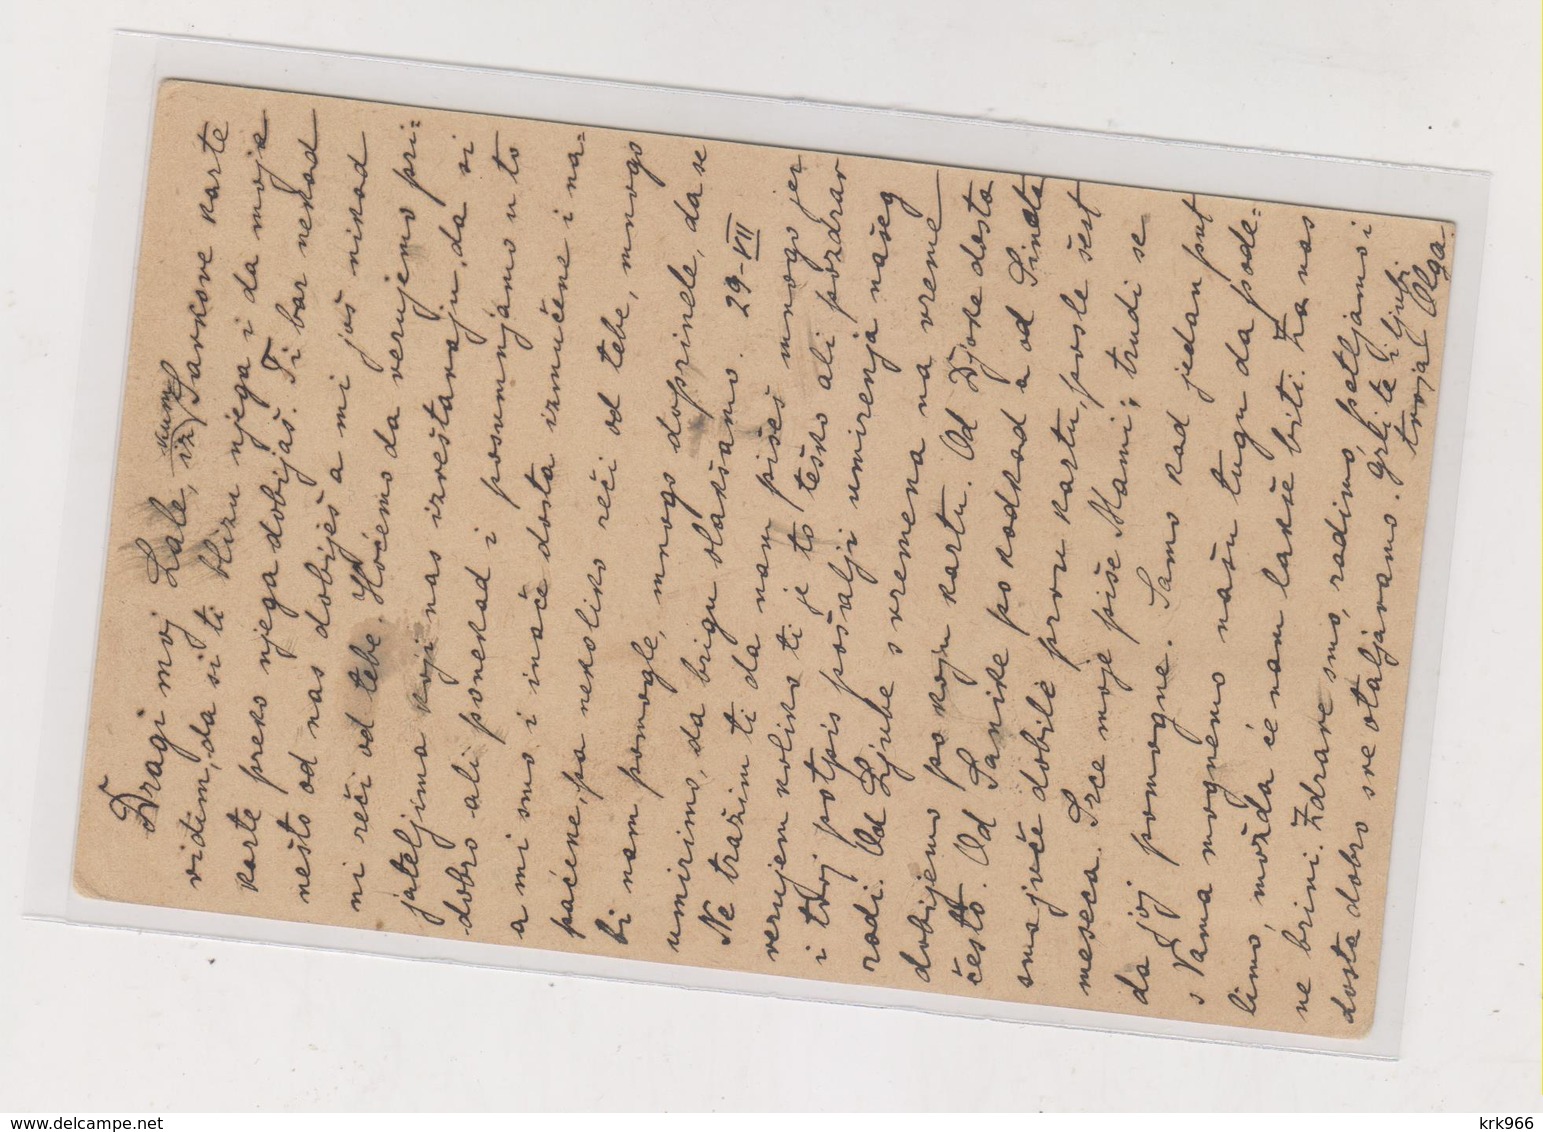 Dragi moj Lale, iz kum Savkove karte
vidim, da si ti blizu njega i da moje
karte preko njega dobijaš. Ti bar nekad
nešto od nas dobiješ a mi još nikad
ni reči od tebe. Hoćemo da verujemo pri=
jateljima koji nas izveštavaju, da si
dobro ali ponekad i posumnjamo u to
a mi smo i inače dosta izmučene i na=
paćene, pa nekoliko reči od tebe, mnogo
bi nam pomogle, mnogo doprinele, da se
umirimo, da brigu olakšamo. 29-VII
Ne tražim ti da nam pišeš mnogo jer
verujem koliko ti je to teško ali pozdrav
i tvoj potpis pošalji umirenja našeg
radi. Od Ljube s vremena na vreme
dobijemo po koju kartu. Od Djoke dosta
često. Od Sanike po kadkad a od Sineta
smo juče dobile prvu kartu, posle šest
meseca. Srce moje piše Mami; trudi se
da joj pomogne. Samo kad jedan put
s Vama mognemo našu tugu da pode=
limo, možda će nam lakše biti. Za nas
ne brini. Zdrave smo, radimo petljamo i
dosta dobro sve otaljavamo. Grli te i ljubi
tvoja Olga.
krk966